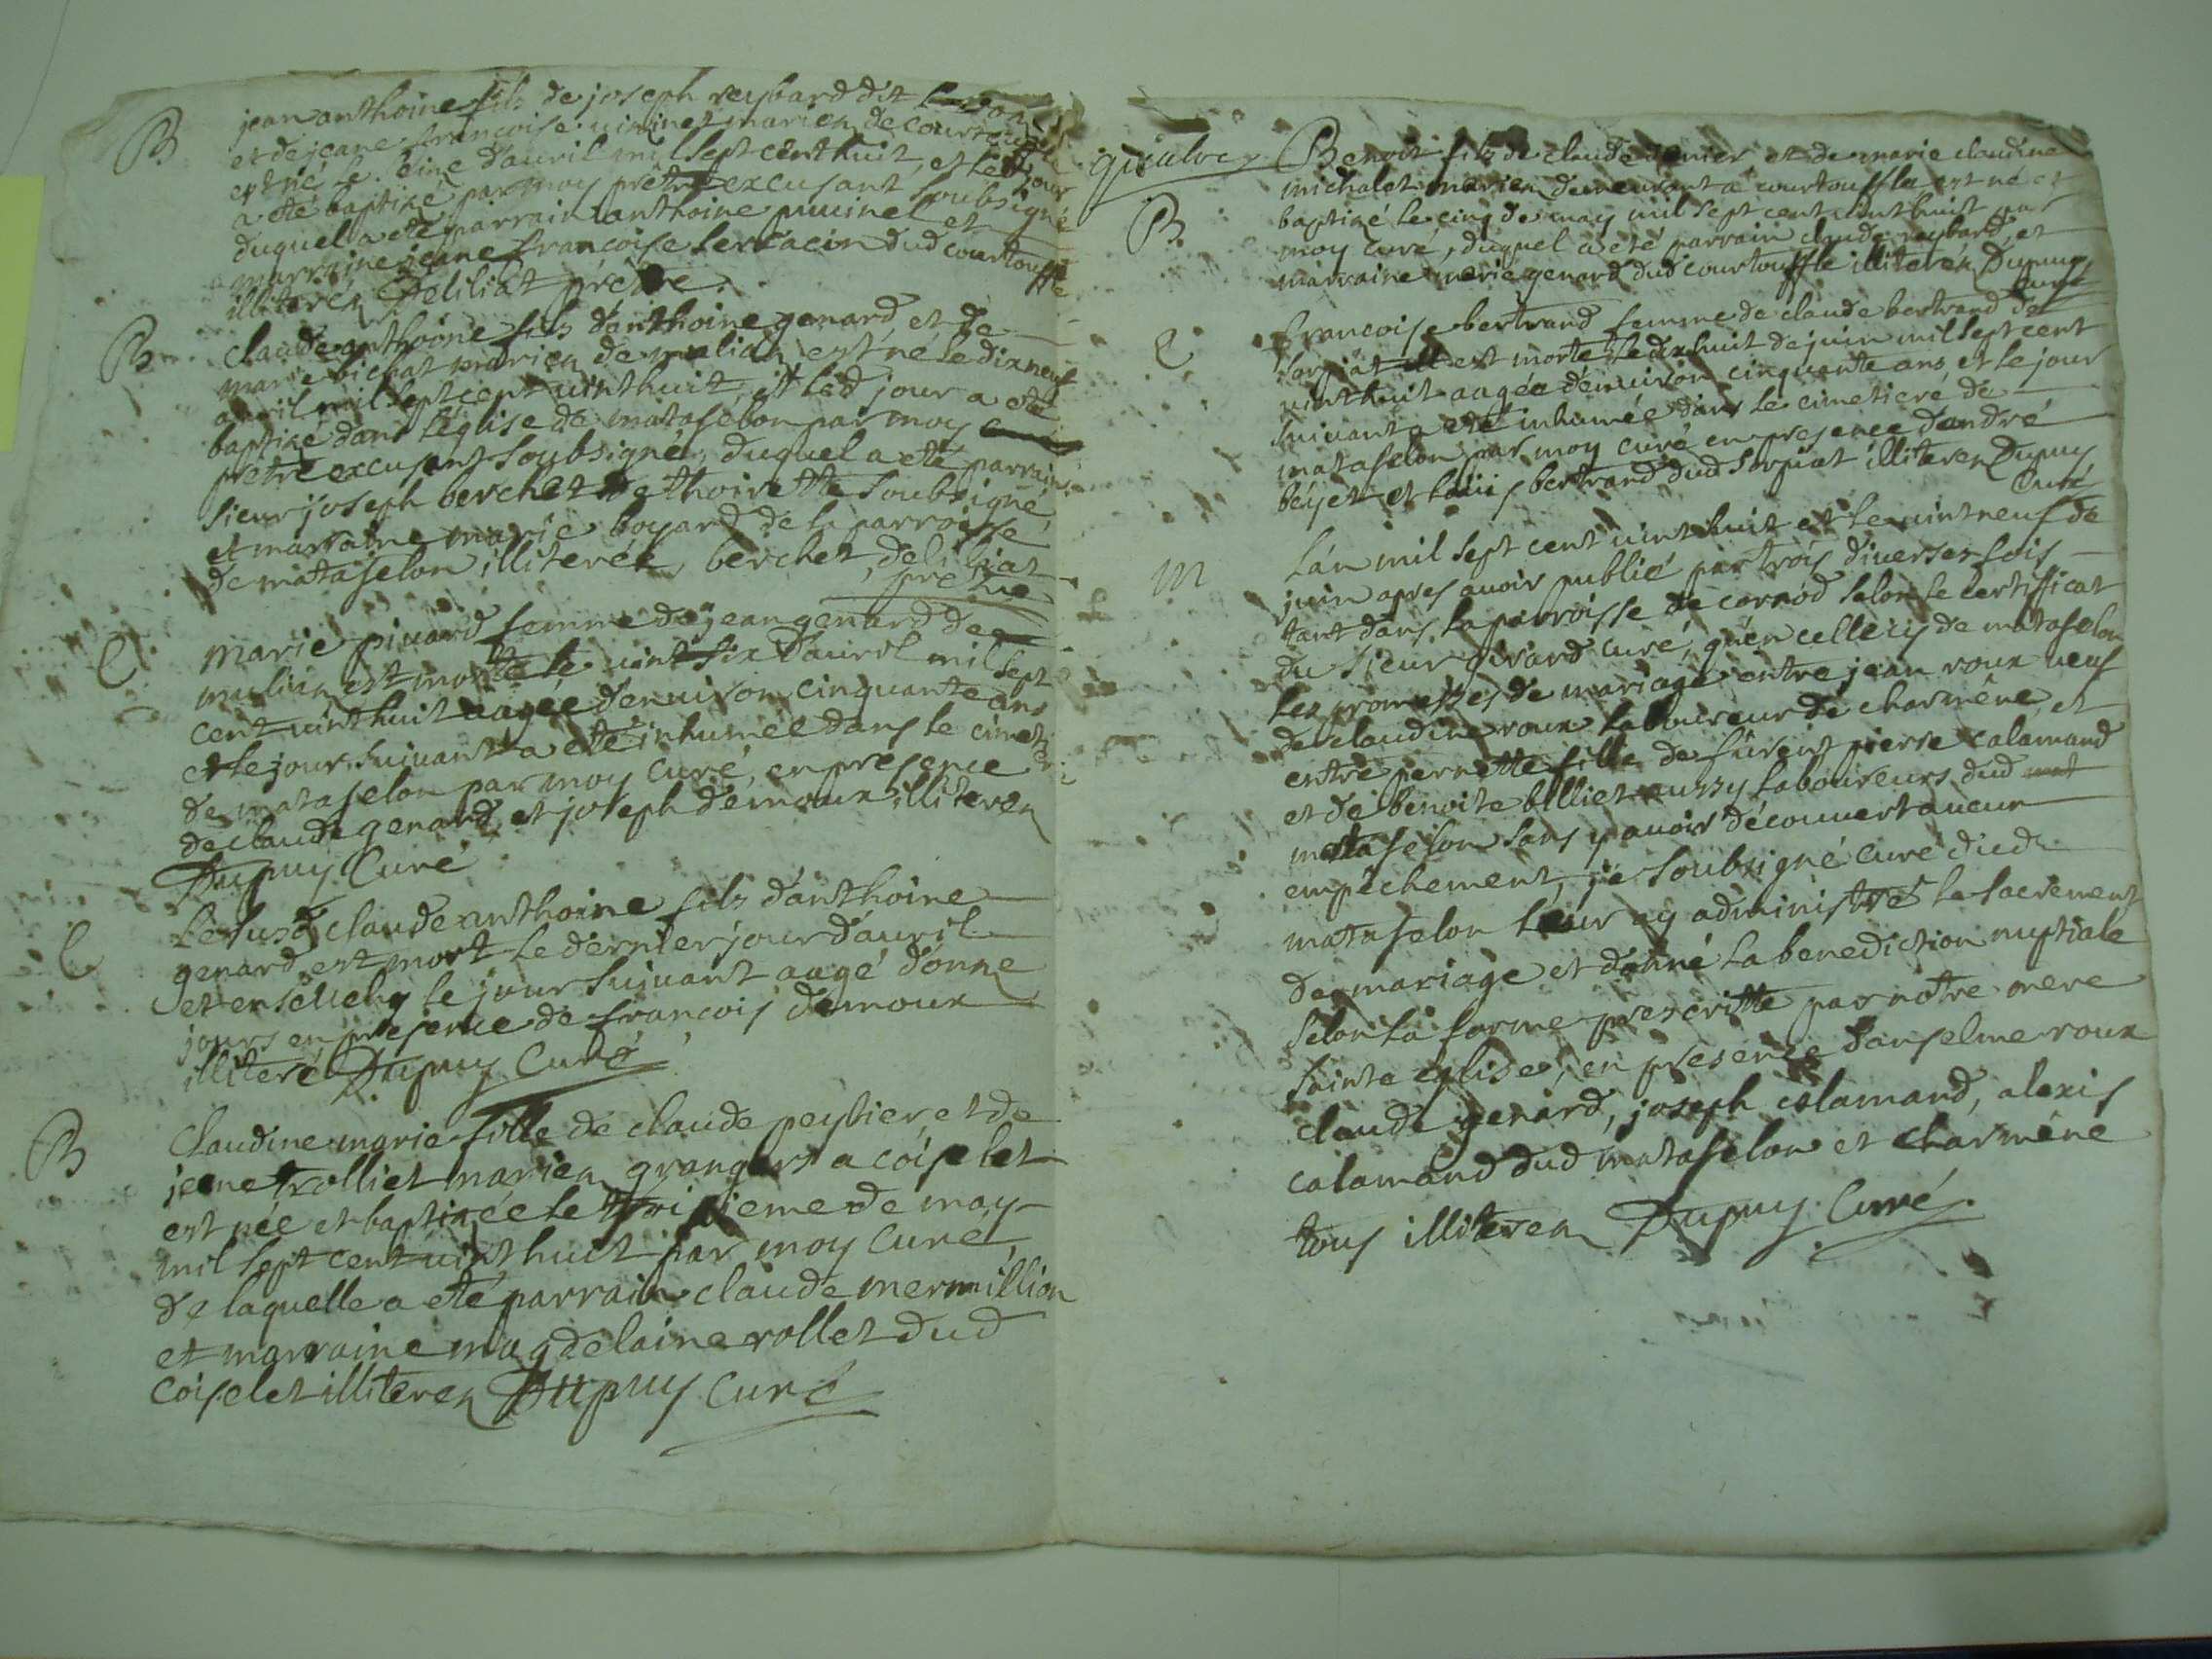 B
jean anthoine fils de joseph reybard dit
et de jeane francoise mariez de
est né le d'auril mil sept cent huit, et led jour
a eté baptizé par moy prétre excusant soubsigné
duquel a eté parrain anthoine et
marraine jeane francoise dud courtouffle
illiterez Deliliat prétre
B
claude anthoine fils d'anthoine genard, et de
marie bichat mariez de mulian est né le dixneuf
auril mil sept cent uint huit, et led jour a eté
baptizé dans l'église de matafelon par moy
prétre excusant soubsigné, duquel a eté parrain
sieur joseph berchet de thoirette soubsigné,
et marraine marie boyard de la parroisse
de matafelon illiterée, berchet, deliliat
prétre
C
marie piuard femme de jean genard de
mulian est morte le uint six d'auril mil sept
cent uint huit aagée denuiron cinquante ans
et le jour suiuant a eté inhumée dans le cimet
de matafelon par moy curé, en présence
de claude genard, et joseph démoux illiterez
Dupuy Curé
C
Le susd claude anthoine fils d'anthoine
genard est mort le dernier jour d'auril
et enseuely le jour suiuant aagé d'onze
jours en présence de francois démoux
illiteré Dupuy Curé
B
Claudine marie fille de claude peybier, et de
jeane rolliet mariez grangers a coiselet
est née et baptizée le troisieme de may
mil sept cent uint huit par moy curé
de laquelle a eté parrain claude mermillion
et marraine magdelaine rollet dud
coiselet illiterez Dupuy Curé
B
Benoit fils de claude et de marie claudine
michalet mariez demeurant a courtouffle est né et
baptizé le cinq de may mil sept cent uint huit par
moy curé, duquel a eté parrain claude reybard, et
marraine marie genard dud courtouffle illiterez Dupuy
Curé
C
francoise bertrand femme de claude bertrand de
sorpiat est morte le dixhuit de juin mil sept cent
uint huit aagée d'enuiron cinquante ans, et le jour
suiuant a eté inhumée dans le cimetieré de
matafelon par moy curé en présence d'andré
béyet et louis bertrand dud sorpiat illiterez Dupuy
Curé
m
L'an mil sept cent uint huit et le uint neuf de
juin apres auoir publié par trois diuerses fois
tant dans la parroisse de cornod selon le certifficat
du sieur girard curé, qu'en celle cy de matafelon
les promesses de mariage entre jean roux ueuf
de claudine roux laboureur de charméne, et
entre pernette fille de fûrent pierre calamand
et de benoite billiet aussy laboureurs dud
matafelon sans y auoir découuert aucun
empêchement, je soubsigné curé dud
matafelon leur ay administré le sacrement
de mariage et donné la benediction nuptiale
selon la forme prescritte par nôtre mere
sainte eglise, en présence d'anselme roux
claude genard, joseph calamand, alexis
calamand dud matafelon et charméne
tous illiterez Dupuy Curé